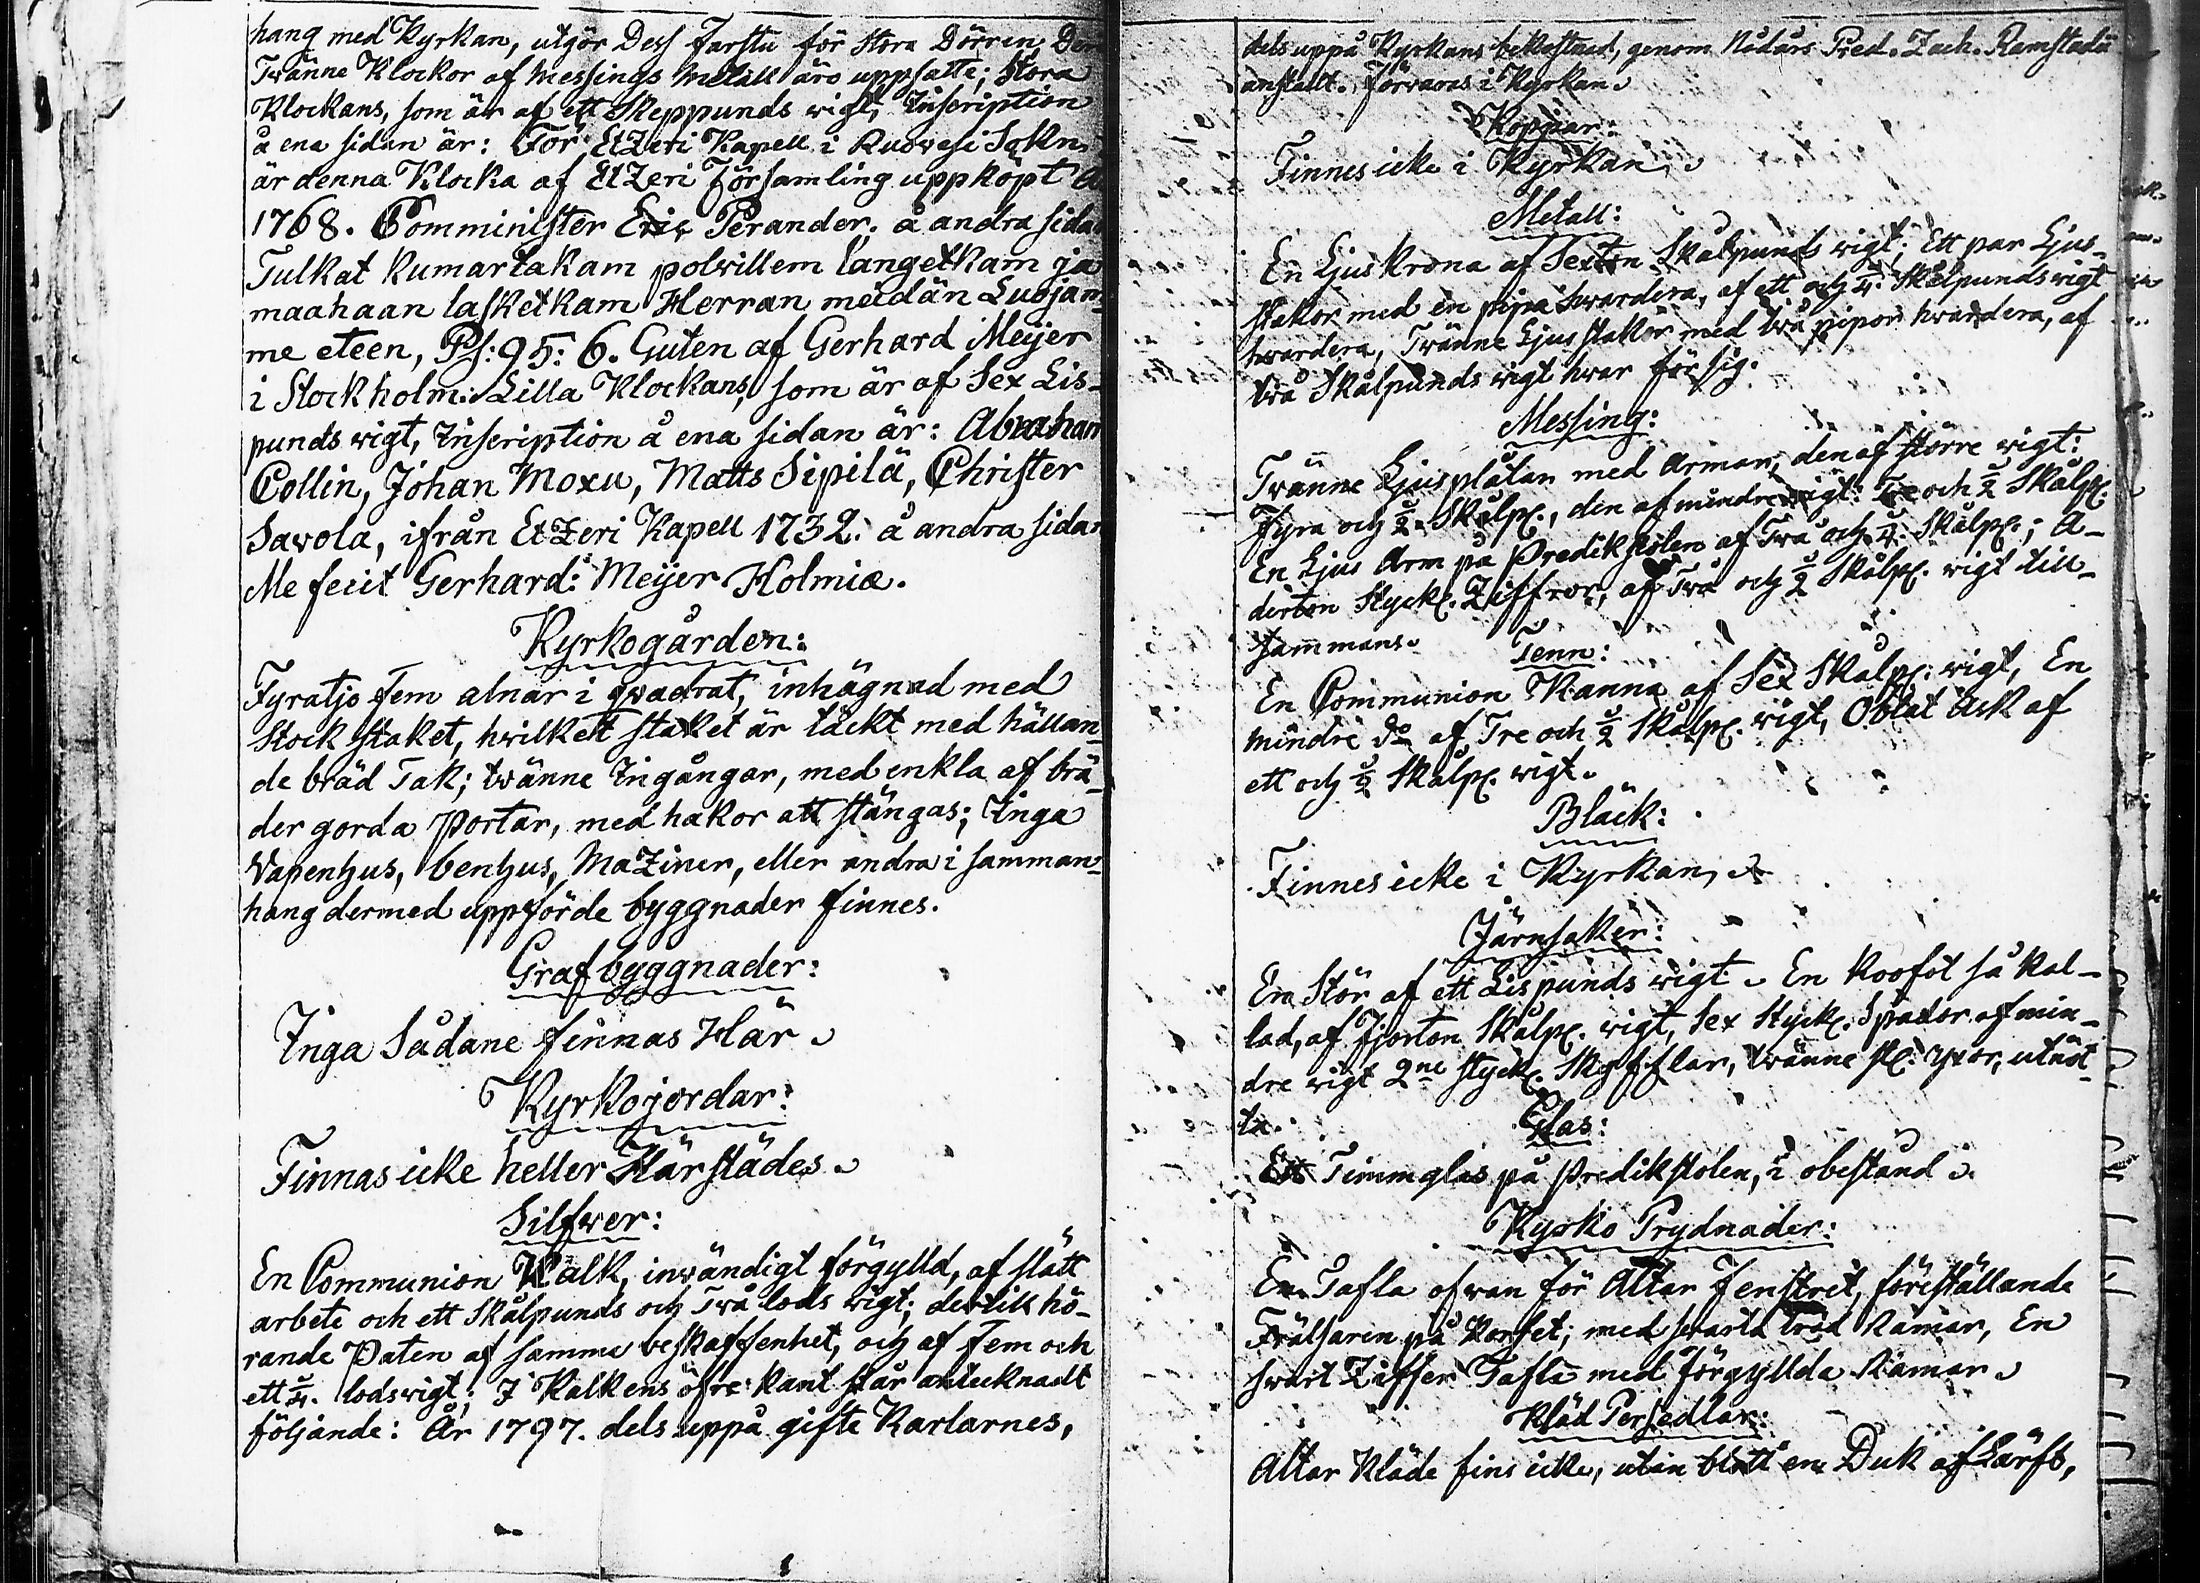 hang med Kyrkan, utgör Dess Farstu för stora Dörren Der
Twänne Klockor af Messings Metall äro uppsatte; Stora
Klockans, som är af ett Skeppunds wigt, Inscription
å ena sidan är: För EtZeri Kapell i Ruowesi Sokn,
är denna Klocka af EtZeri Församling uppköpt A
1768. Comminister Eric Perander. å andra sidan
Tulkat kumartakam polwillem langetkam ja
maahaan lasketkam Herran meidän Luojam-
me eteen, Ps: 95: 6. Guten af Gerhard Meijer
i Stockholm: Lilla Klockans, som är af Sex Lis-
punds wigt, Inscription å ena sidan är: Abraham
Collin, Johan Moxu, Matts Sipilä, Christer
Savola, ifrån EtZeri Kapell 1732. å andra sidan
Me fecit Gerhard: Meijer Holmiæ.
Kyrkogården:
Fyratjo Fem alnar i qwadrat, inhägnad med
Stock staket, hwilkett staket är täckt med hällan-
de bräd Tak; twänne Ingångar, med enkla af brä-
der gorda Portar, med hakor att stängas; Inga
Vapenhus, benhus, MaZiner, eller andra i samman-
hang dermed uppförde byggnader finnes.
Grafbyggnader:
Inga Sådane finnas Här
Kyrkojordar:
Finnas icke heller Härstädes
Silfwer:
En Communion Kalk, inwändigt förgylld, af slätt
arbete och ett Skålpunds och Två lods wigt; dertill hö-
rande Paten af samma beskaffenhet, och af Fem och
ett 1/4. lods wigt; I Kalkens öfre kant står antecknadt
följande: År 1797. dels uppå gifte Karlarnes,
dels uppå Kyrkans bekostnad, genom Nådårs Pred. Zach. Ramstadii
anstalt. Förvaras i Kyrkan
Koppar:
Finnes icke i Kyrkan
Metall:
En Ljuskrona af Sexton Skålpunds wigt; Ett par Ljus-
stakor med en pipa hwardera, af ett och 1/4. Skålpunds wigt
hwardera, Twänne Ljusstakor med två pipor hwardera, af
två Skålpunds wigt hwar för sig.
Messing:
Twänne Ljusplåtar med Armar, den af större wigt:
Fyra och 1/2. Skålp., den af mindre wigt: Tre och 1/2 Skålp.
En Ljus Arm på Predikstolen af Två och 1/4. Skålp.; A-
derton Styck. Ziffror, af Två och 1/2 Skålp. wigt till-
sammans
Tenn:
En Communion Kanna af Sex Skålp. wigt, En
mindre do af Tre och 1/2 Skålp. wigt, Oblat Ask af
ett och 1/2 Skålp. wigt
Bläck:
Finnes icke i Kyrkan
Järnsaker:
En Stör af ett Lispunds wigt En koofot så kal-
lad, af Fjorton Skålp. wigt, Sex Styck. Spador af min-
dre wigt 2ne styck. Skyfflar, twänne st. yxor, utnöt-
ta.
Glas:
Ett Timmglas på Predikstolen, i obestånd
Kyrko Prydnader:
En Tafla ofwan för Altar Fenstret, föreställande
Frälsaren på Korset; med svarta träd Ramar, En
svart Ziffer Tafla med förgyllda Ramar
Kläd Persedlar:
Altar Kläde fins icke, utan blott en Duk af Lärft,